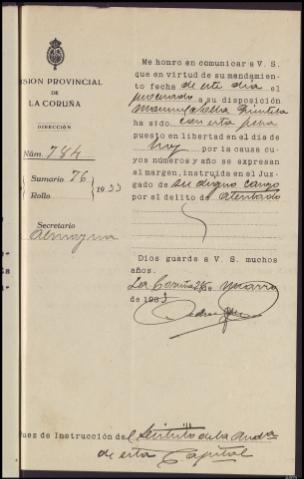 SION PROVINCIAL
DE
LA CORUÑA
DIRECCIÓN
Núm. 784
Sumario 76
Rollo
1933
Secretario
Me honro en comunicar a V. S.
que en virtud de su mandamiento
fecha de este día el
procesado a su disposición
Manuel
ha sido con esta fecha
puesto en libertad en el día de
hoy por la causa cuyos
números y año se expresan
al margen, instruida en el Juzgado
de su digno cargo
por el delito de atentado
Dios guarde a V. S. muchos
años.
La Coruña 26 Marzo
de 1933
uez de Instrucción del distrito de la Auda
de esta Capital